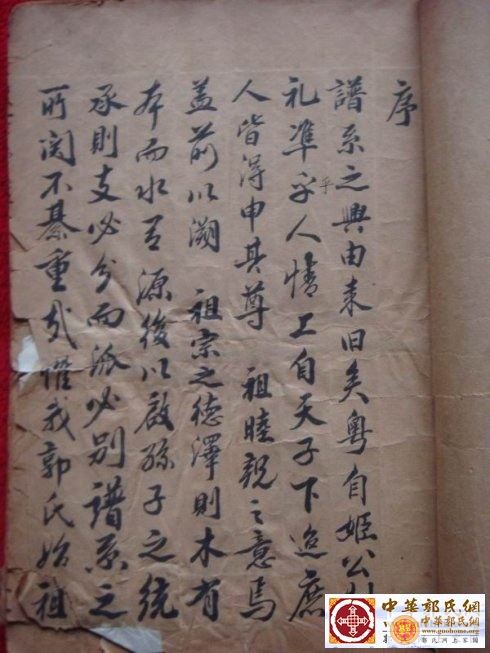 序
譜系之興由来旧矣粤自姬公
礼準乎人情上自天子下迨庶
乎
人皆得申其尊 祖睦親之意焉
盖前以溯 祖宗之德澤則木有
本而水有源後以啟孫子之统
承則支必分而派必别譜系之
所関不綦重哉惟我郭氏始祖
中華郭氏網
中華郭氏網
www.guohome.org